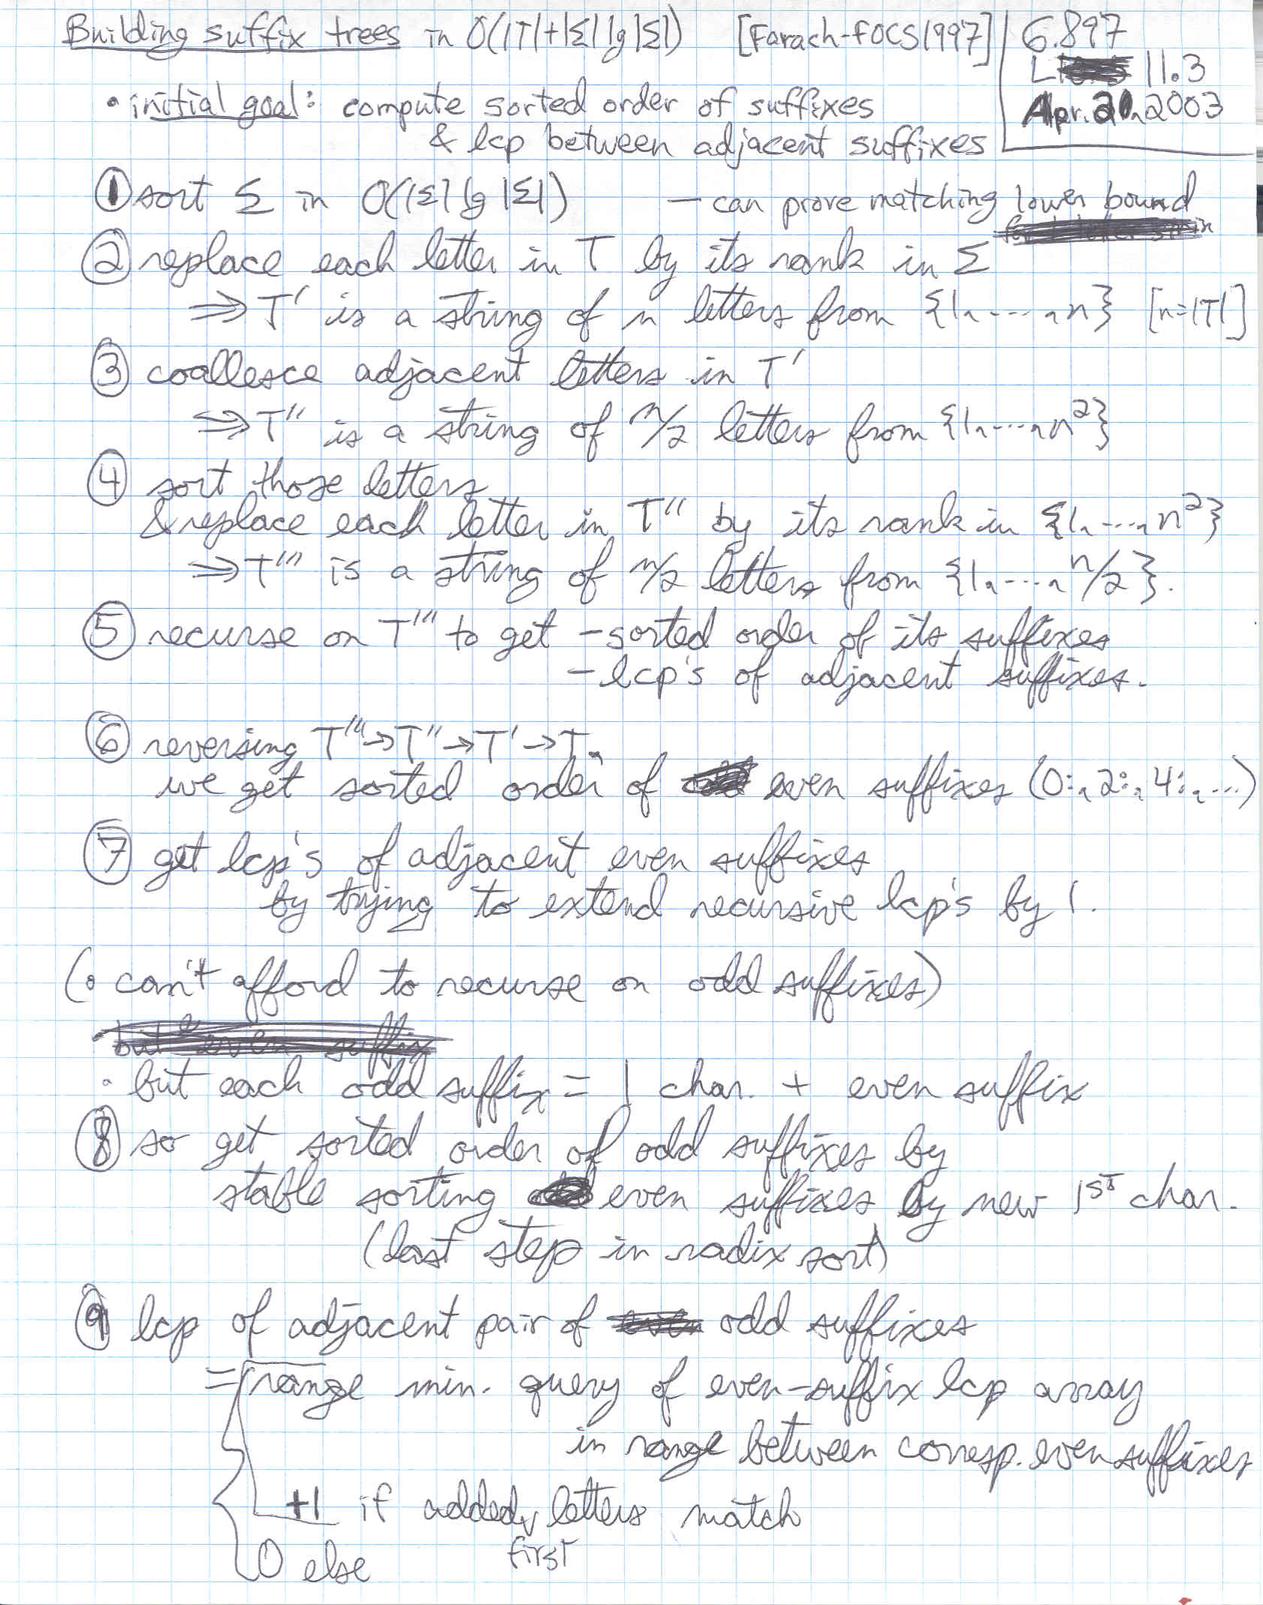 Building suffix trees in O(|T|+|Σ| lg |Σ|) [Farach-FOCS1997]
6.897
L 11.3
Apr. 21, 2003
• initial goal: compute sorted order of suffixes
& lcp between adjacent suffixes
① sort Σ in O(|Σ| lg |Σ|) — can prove matching lower bound
② replace each letter in T by its rank in Σ
⇒ T' is a string of n letters from {1, ..., n} [n=|T|]
③ coallesce adjacent letters in T'
⇒ T'' is a string of n/2 letters from {1, ..., n²}
④ sort those letters
& replace each letter in T'' by its rank in {1, ..., n²}
⇒ T''' is a string of n/2 letters from {1, ..., n/2}.
⑤ recurse on T''' to get - sorted order of its suffixes
- lcp's of adjacent suffixes.
⑥ reversing T'''→T''→T'→T,
we get sorted order of even suffixes (0:, 2:, 4:, ...)
⑦ get lcp's of adjacent even suffixes
by trying to extend recursive lcp's by 1.
(• can't afford to recurse on odd suffixes)
• but each odd suffix = 1 char. + even suffix
⑧ so get sorted order of odd suffixes by
stable sorting even suffixes by new 1ST char.
(last step in radix sort)
⑨ lcp of adjacent pair of odd suffixes
= { range min. query of even-suffix lcp array
in range between corresp. even suffixes
+1 if added first letters match
0 else